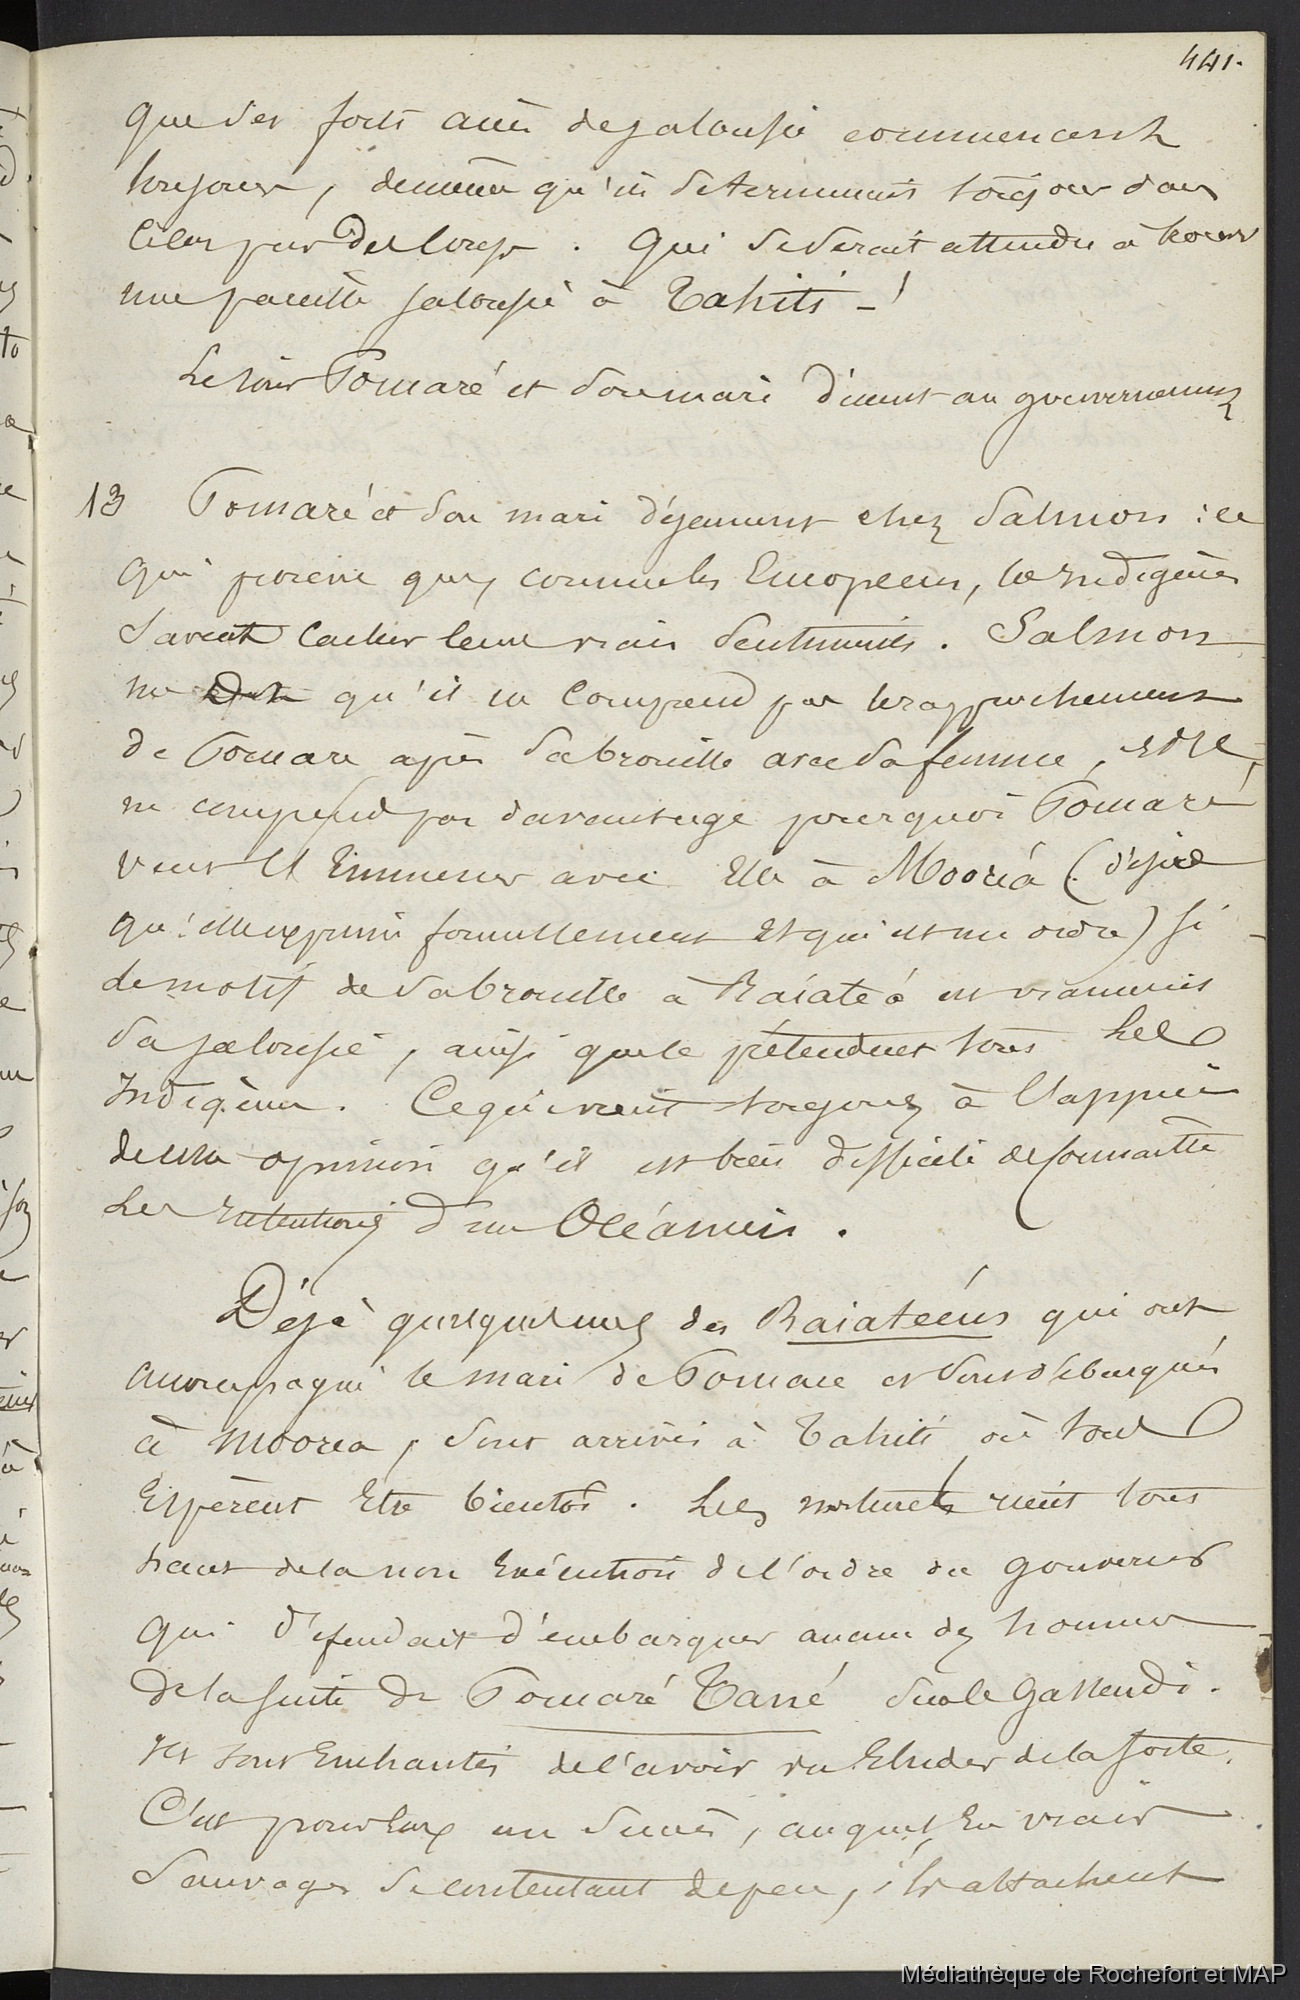 441.
que ses forts accès de jalousie commencent
toujours, de même qu'ils se terminent toujours dans
l'ile par des coups. Qui se serait attendu à trouver
une pareille jalousie à Tahiti - !
Le soir Pomaré et son mari dinent au gouvernement
13 Pomaré et son mari déjeunent chez Salmon : ce
qui prouve que, comme les Européens, les Indigènes
savent cacher leurs vrais sentiments. Salmon
me dit qu'il ne comprend pas le rapprochement
de Pomare après sa brouille avec sa femme, et il
ne comprend pas davantage pourquoi Pomaré
veut l'emmener avec elle à Mooréa (désir
qu'elle exprime formellement et qui est un ordre) si
le motif de sa brouille à Raiatéa est vraiment
sa jalousie, ainsi que le prétendent tous les
Indigènes. Ce qui vient toujours à l'appui
de mon opinion qu'il est bien difficile de connaitre
les intentions d'un Océanien.
Déjà quelques uns des Raiatéens qui ont
accompagné le mari de Pomare et sont débarqués
à Moorea, sont arrivés à Tahiti où tous
espèrent être bientôt. Les naturels rient tous
haut de la non exécution de l'ordre du gouverneur
qui défendait d'embarquer aucun des hommes
de la suite de Pomaré Tané sur le Gassendi.
Ils sont enchantés de l'avoir vu éluder de la sorte.
C'est pour eux un succès, auquel en vrais
sauvages se contentant de peu, ils attachent
Médiathèque de Rochefort et MAP